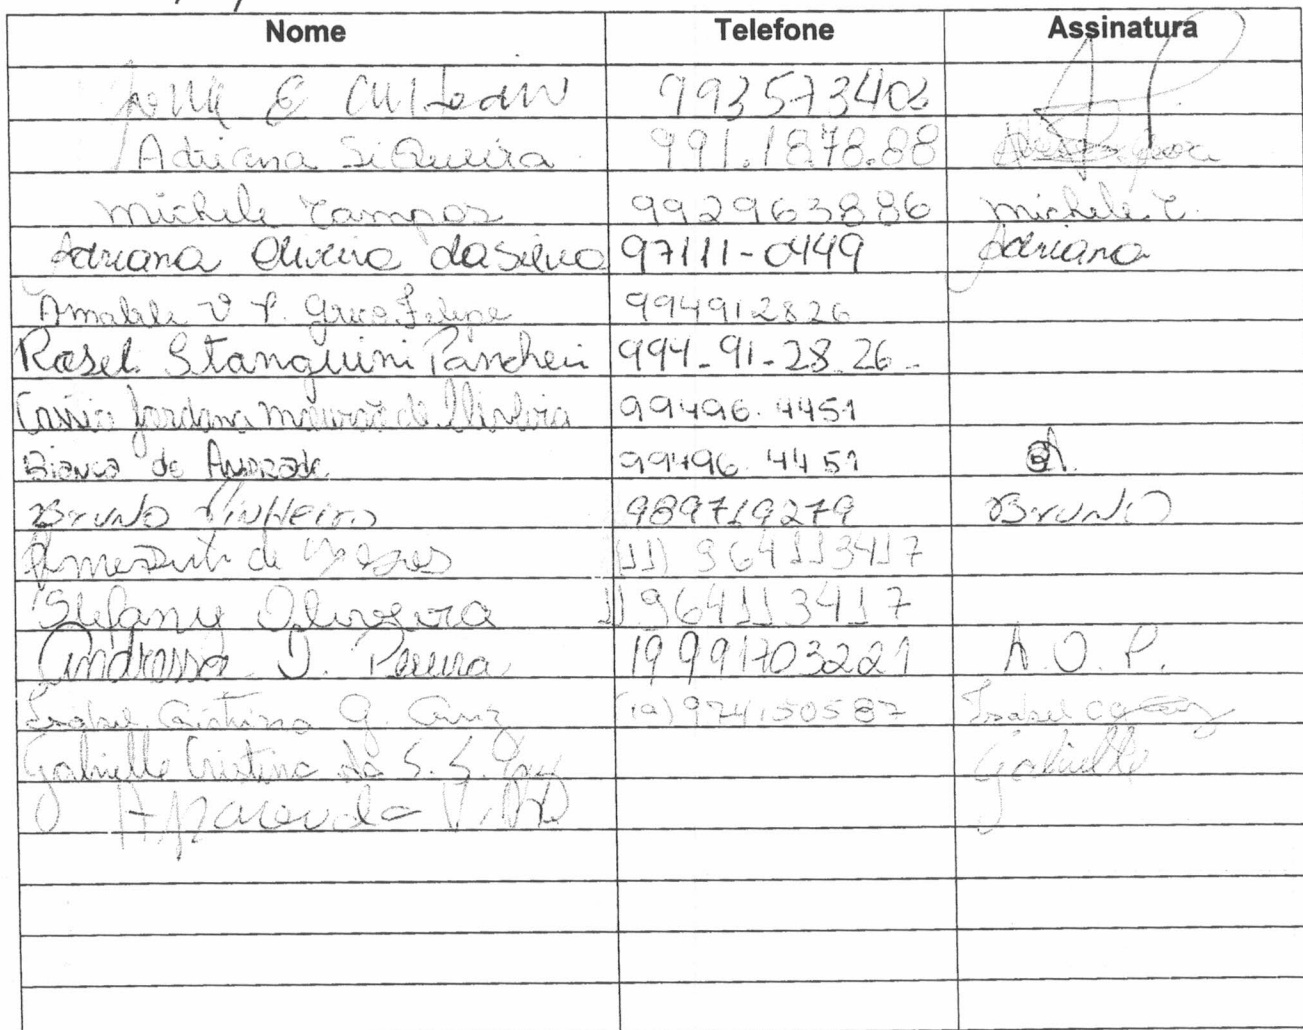 Nome Telefone Assinatura
993573402
Adriana SiQueira 991.1878.88
Michele Campos 992963886 Michele C.
Adriana Oliveira da Silva 97111-0449 Adriana
Amabile V P. Felipe 994912826
Rosel. Stanguini 994-91-28 26-
Cassia Jordana de 99496.4451
Bianca de Andrade 99496.4451
Bruno Pinheiro 989719279 Bruno
de (11) 964113417
Stefany Oliveira 11964113417
Andressa O. Pereira 19 991703221 A.O.P.
Isabel Cristina G. Cruz (19) 974150587 Isabel
Gabrielle Cristina da S. S. Cruz Gabrielle
Aparecida